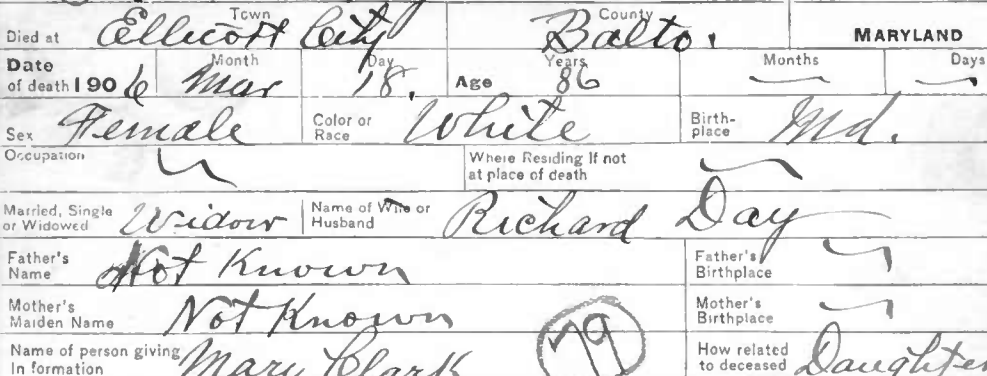 Town County
Died at Ellicott City Balto. MARYLAND
Date of death 1906 Month Mar Day 18. Age Years 86 Months Days
Sex Female Color or Race White Birthplace Md.
Occupation Where Residing If not at place of death
Married, Single or Widowed Widow Name of Wife or Husband Richard Day
Father's Name Not Known Father's Birthplace
Mother's Maiden Name Not Known Mother's Birthplace
Name of person giving In formation Mary Clark 79 How related to deceased Daughter